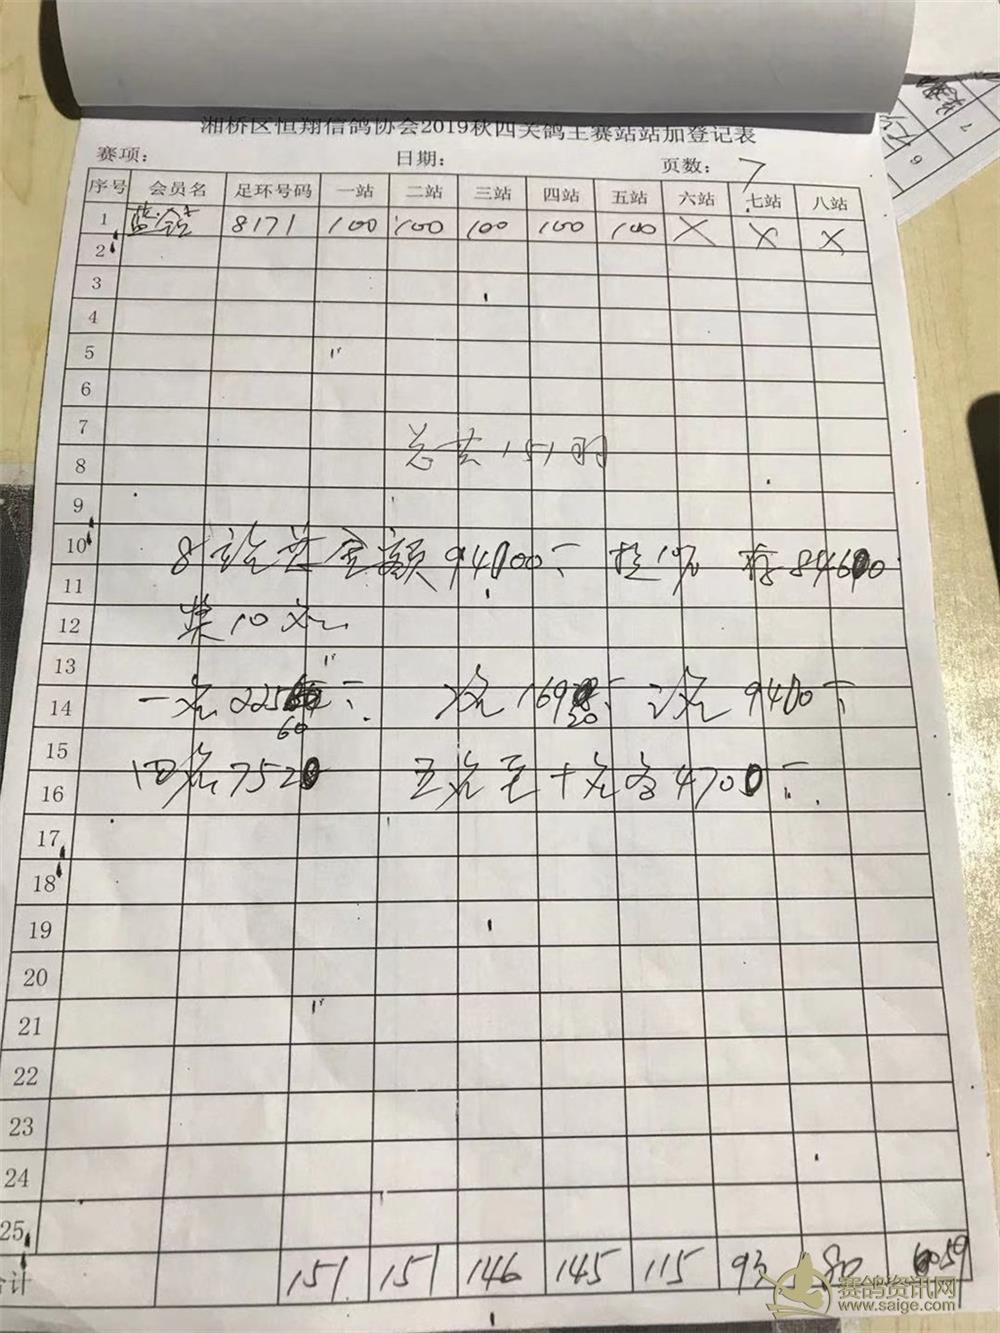 湘桥区恒翔信鸽协会2019秋四关鸽王赛站站加登记表
赛项： 日期： 页数：7
序号 会员名 足环号码 一站 二站 三站 四站 五站 六站 七站 八站
1 8171 100 100 100 100 100 X X X
2
3
4
5
6
7
总共151羽
8
9
10 8站总金额94000 提10% 存84600
11
12 奖10名
13
14 一名 60 9400
15
16 四名7520 五名至十名各4700
17
18
19
20
21
22
23
24
25
合计 151 151 146 145 115 93 80 59
赛鸽资讯网
www.saige.com